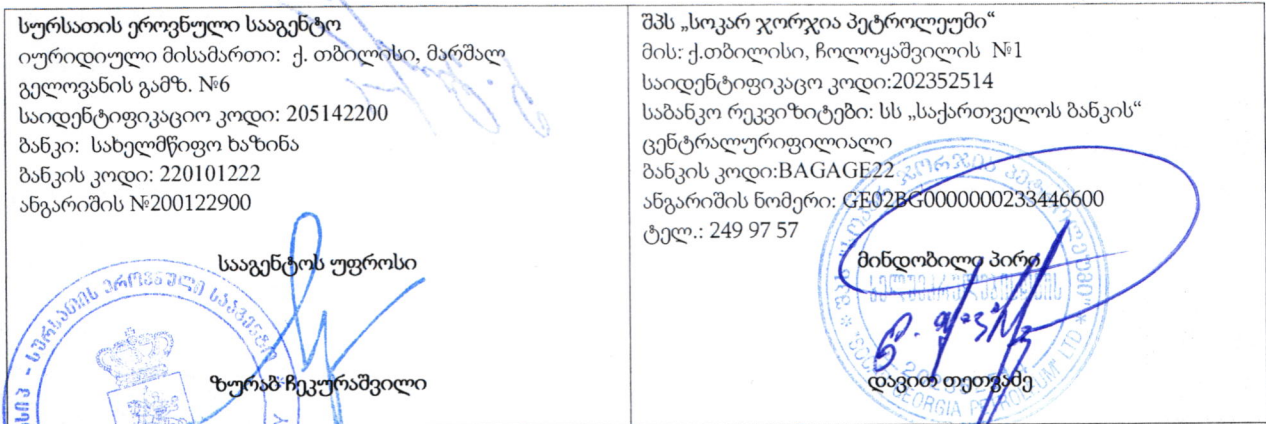 სურსათის ეროვნული სააგენტო
იურიდიული მისამართი: ქ. თბილისი, მარშალ
გელოვანის გამზ. №6
საიდენტიფიკაციო კოდი: 205142200
ბანკი: სახელმწიფო ხაზინა
ბანკის კოდი: 220101222
ანგარიშის №200122900
სააგენტოს უფროსი
ზურაბ ჩეკურაშვილი
შპს „სოკარ ჯორჯია პეტროლეუმი“
მის: ქ.თბილისი, ჩოლოყაშვილის №1
საიდენტიფიკაცო კოდი:202352514
საბანკო რეკვიზიტები: სს „საქართველოს ბანკის“
ცენტრალურიფილიალი
ბანკის კოდი:BAGAGE22
ანგარიშის ნომერი: GE02BG0000000233446600
ტელ.: 249 97 57
მინდობილი პირი
დავით თეთვაძე
სსიპ - სურსათის ეროვნული სააგენტო
შპს "სოკარ ჯორჯია პეტროლეუმი"
ხელშეკრულებებისთვის
"SOCAR GEORGIA PETROLEUM" LTD